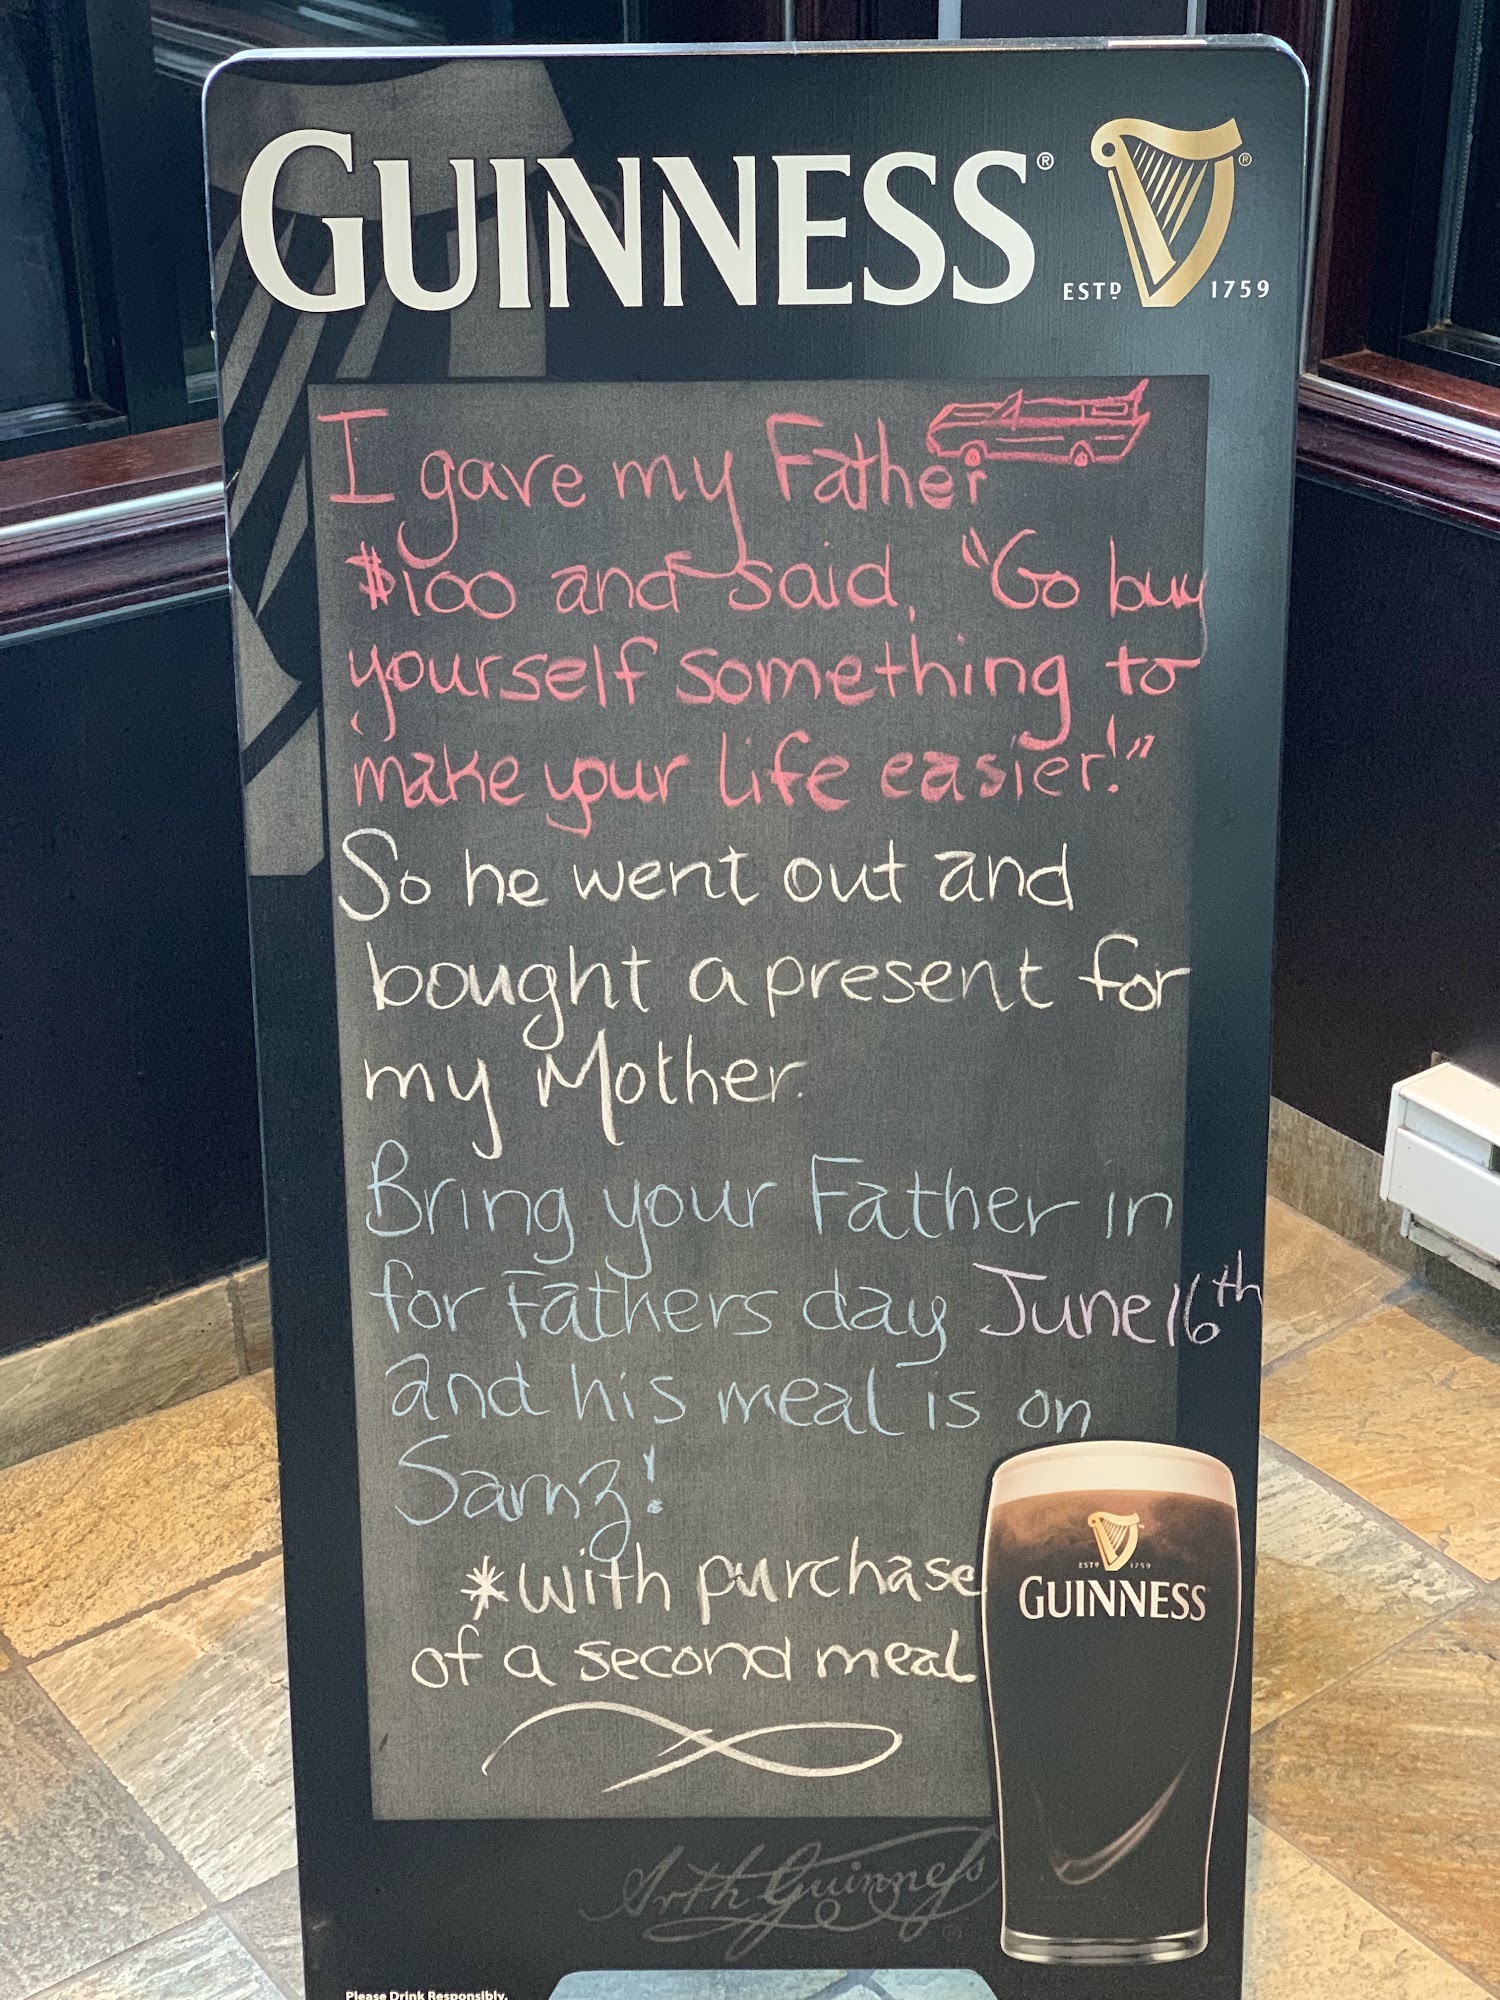 GUINNESS®
ESTD 1759
I gave my Father
$100 and said, "Go buy
yourself something to
make your life easier!"
So he went out and
bought a present for
my Mother.
Bring your Father in
for Fathers day June 16th
and his meal is on
Sarnz!
*with purchase
of a second meal
ESTD 1759
GUINNESS
Arth Guinness
Please Drink Responsibly.